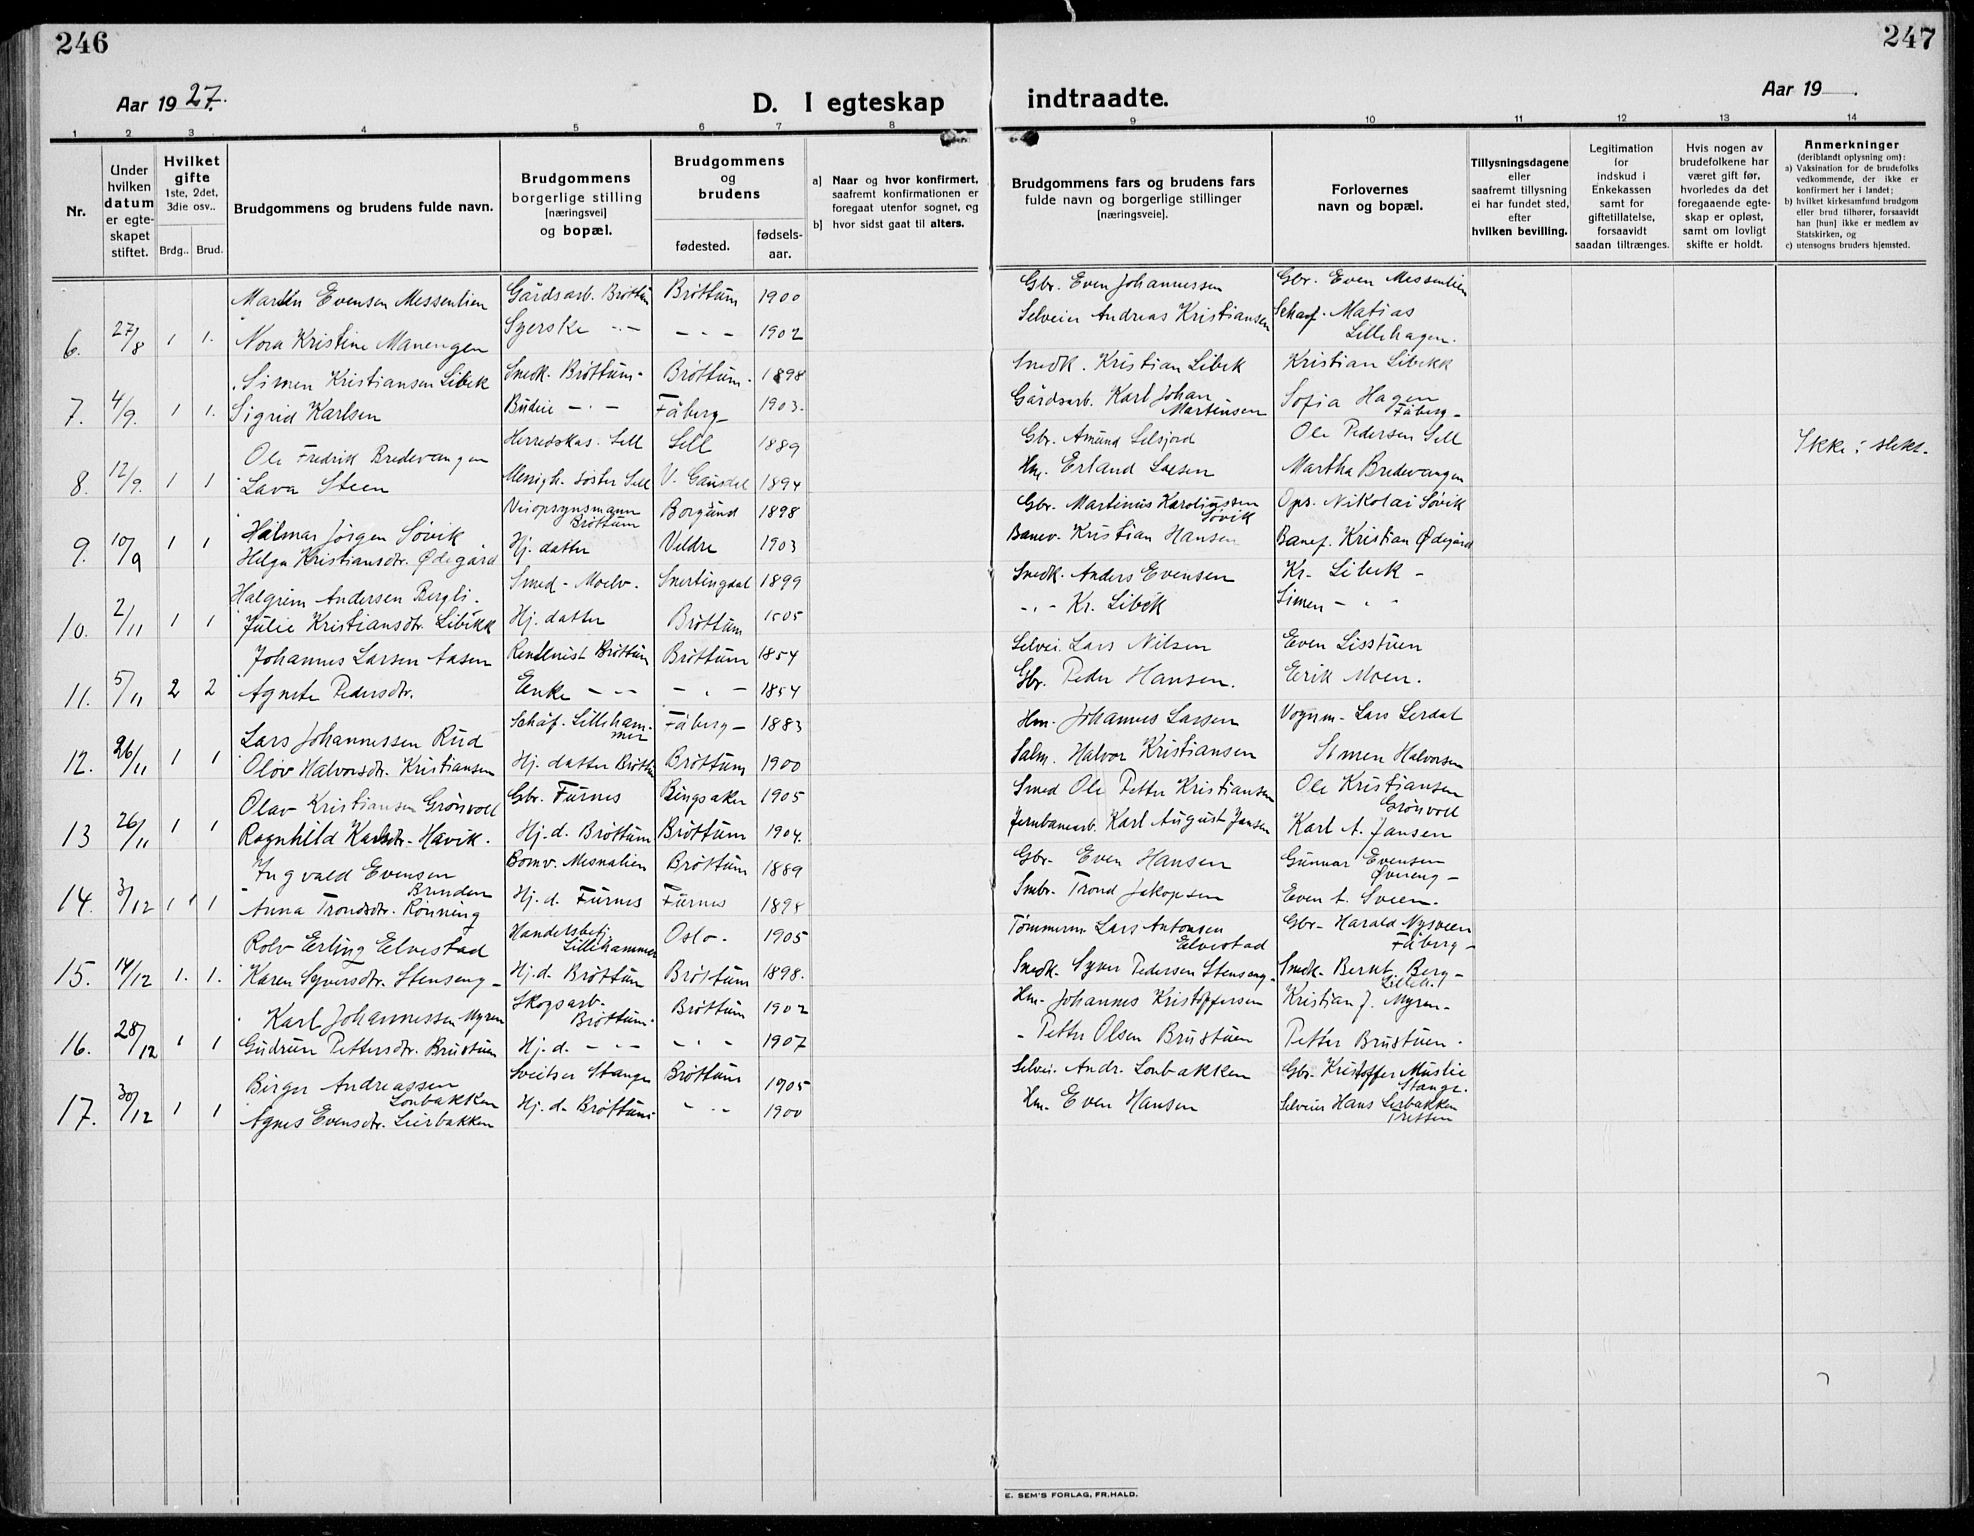 246
Aar 1927.
D. I egteskap
1 2 3 4 5 6 7 8
Nr.
Under hvilken datum er egteskapet stiftet.
Hvilket gifte 1ste, 2det, 3die osv..
Brdg..
Brud.
Brudgommens og brudens fulde navn.
Brudgommens borgerlige stilling [næringsvei] og bopæl.
Brudgommens og brudens
fødested.
fødselsaar.
a] Naar og hvor konfirmert, saafremt konfirmationen er foregaat utenfor sognet, og
b] hvor sidst gaat til alters.
Evensen Messenlien Gårdsarb. Brøttum Brøttum 1900
6. 27/8 1 1. Nora Kristine Manengen Syerske -"- - " - 1902
Simen Kristiansen Libek Snedk. Brøttum- Brøttum. 1898
7. 4/9. 1 1. Sigrid Karlsen Budeie - " - Fåberg- 1903.
Ole Fredrik Bredevangen Herredskas. Sell Sell 1889
8. 12/9. 1 1 Lava Steen Menigh. søster Sell V. Gausdal 1894
Hilmar Jørgen Søvik Brøttum Borgund 1898
9. 10/9 1 1 Helga Kristiansdtr. Ødegård Hj. datter Veldre 1903
Halgrim Andersen Bergli. Smed - Moelv. Snertingdal 1899
10. 2/11 1 1 Julie Kristiansdtr. Libekk Hj. datter Brøttum 1505
Johannes Larsen Aasen Brøttum Brøttum 1854
11. 5/11 2 2 Agnete Pedersdtr. Enke - " - - " - 1854
Lars Johannessen Rud Schåf. Lillehammer Fåberg- 1883
12. 26/11 1 1 Olov Halvorsdtr. Kristiansen Hj. datter Brøttum Brøttum 1900
Olav Kristiansen Grønvold Gbr. Furnes Ringsaker 1905
13 26/11 1 1 Ragnhild Karlsdtr. Havik. Hj. d. Brøttum Brøttum 1904.
Ingvald Evensen Brenden Bomv. Mesnalien Brøttum 1889
14. 3/12 1 1 Anna Trondsdtr. Rønning Hj. d. Furnes Furnes 1898
Rolv Erling Elvestad Handelsbetj. Lillehammer Oslo- 1905
15. 14/12 1. 1. Karen Syversdtr. Stenseng- Hj. d. Brøttum Brøttum 1898.
Karl Johannessen Myren Skogsarb. Brøttum. Brøttum 1902
16. 28/12 1 1 Gudrun Pettersdtr. Brustuen Hj. d. - " - - " - 1907
Birger Andreassen Lonbakken Sveitser Stange Brøttum 1905
17. 30/12 1 1 Agnes Evensdtr. Lierbakken Hj. d. Brøttum - " - 1900
247
indtraadte.
Aar 19 .
9 10 11 12 13 14
Brudgommens fars og brudens fars fulde navn og borgerlige stillinger [næringsveie].
Forlovernes navn og bopæl.
Tillysningsdagene eller saafremt tillysning ei har fundet sted, efter hvilken bevilling.
Legitimation for indskud i Enkekassen samt for giftetillatelse, forsaavidt saadan tiltrænges.
Hvis nogen av brudefolkene har været gift før, hvorledes da det foregaaende egteskap er opløst, samt om lovligt skifte er holdt.
Anmerkninger (deriblandt oplysning om):
a) Vaksination for de brudefolks vedkommende, der ikke er konfirmert her i landet;
b) hvilket kirkesamfund brudgom eller brud tilhører, forsaavidt han [hun] ikke er medlem av Statskirken, og
c) utensogns bruders hjemsted.
Gbr. Even Johannessen Gbr. Even Messenlien
Selveier Andreas Kristiansen Schauf. Matias Lillehagen.
Snedk. Kristian Libek Kristian Libekk
Gårdsarb. Karl Johan Martinsen Sofia Hagen Fåberg-
Gbr. Amund Selsjord Ole Pedersen Sell Ikke i slekt.
Hm. Erland Martha Bredevangen
Gbr. Martinus Karoliussen Søvik Ops. Nikolai Søvik
Banev. Kristian Hansen Banef. Kristian Ødegård
Snedk. Anders Evensen Kr. Libek -
- " - Kr. Libek Simen - " -
Selvei. Lars Nilsen Even Lisstuen
Gbr. Peder Hansen. Erik Moen.
Hm. Johannes Larsen Vognm. Lars Lerdal
Salm. Halvor Kristiansen Simen Halvorsen
Smed Ole Petter Kristiansen Ole Kristiansen Grønvold
Jernbanearb. Karl August Jansen Karl A. Jansen
Gbr. Even Hansen Gunnar Evensen Øvereng-
Smbr. Trond Jakopsen Even A. Sveen.
Tømmerm. Lars Antonsen Elvestad Gbr. Harald Nysveen Fåberg-
Snedk. Syver Pedersen Stenseng- Snedk. Bernt Berg- Lilleh.
Hm. Johannes Kristoffersen Kristian J. Myren-
- Petter Olsen Brustuen Petter Brustuen.
Selvei. Andr. Lonbakken Gbr. Kristoffer Muslie Stange.
Hm. Even Hansen Selveier Hans Lierbakken Tretten
E. SEM'S FORLAG, FR.HALD.